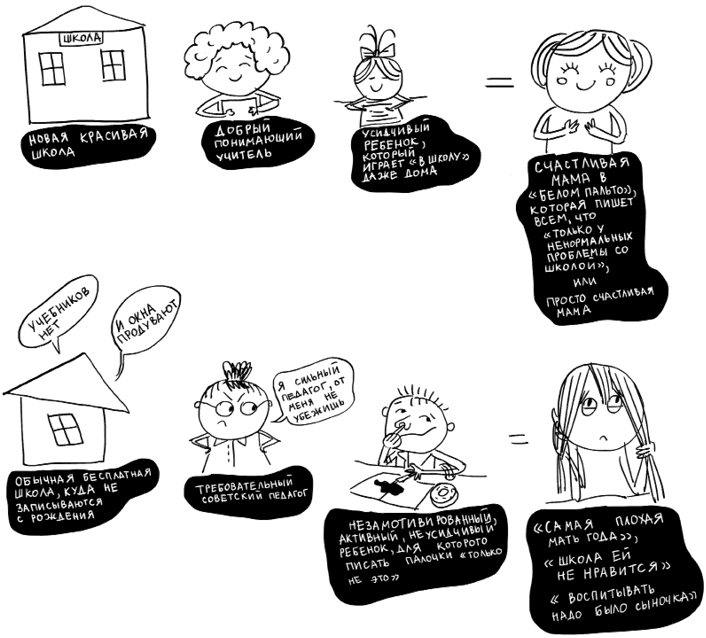 ШКОЛА
НОВАЯ КРАСИВАЯ
ШКОЛА
ДОБРЫЙ
ПОНИМАЮЩИЙ
УЧИТЕЛЬ
УСИДЧИВЫЙ
РЕБЕНОК,
КОТОРЫЙ
ИГРАЕТ «В ШКОЛУ»
ДАЖЕ ДОМА
=
СЧАСТЛИВАЯ
МАМА В
«БЕЛОМ ПАЛЬТО»,
КОТОРАЯ ПИШЕТ
ВСЕМ, ЧТО
«ТОЛЬКО У
НЕНОРМАЛЬНЫХ
ПРОБЛЕМЫ СО
ШКОЛОЙ»,
ИЛИ
ПРОСТО СЧАСТЛИВАЯ
МАМА
УЧЕБНИКОВ
НЕТ
И ОКНА
ПРОДУВАЮТ
ОБЫЧНАЯ БЕСПЛАТНАЯ
ШКОЛА, КУДА НЕ
ЗАПИСЫВАЮТСЯ
С РОЖДЕНИЯ
Я СИЛЬНЫЙ
ПЕДАГОГ, ОТ
МЕНЯ НЕ
УБЕЖИШЬ
ТРЕБОВАТЕЛЬНЫЙ
СОВЕТСКИЙ ПЕДАГОГ
НЕЗАМОТИВИРОВАННЫЙ,
АКТИВНЫЙ, НЕУСИДЧИВЫЙ
РЕБЕНОК, ДЛЯ КОТОРОГО
ПИСАТЬ ПАЛОЧКИ «ТОЛЬКО
НЕ ЭТО»
=
«САМАЯ ПЛОХАЯ
МАТЬ ГОДА»,
«ШКОЛА ЕЙ
НЕ НРАВИТСЯ»
«ВОСПИТЫВАТЬ
НАДО БЫЛО СЫНОЧКА»